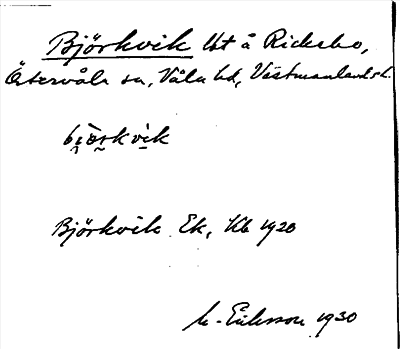 Björkvik Ut å Ricksbo,
Östervåla sn, Våla hd, Västmanlands l.
bjœrkvik
Björkvik Ek, Kb 1920
M. Eriksson 1930